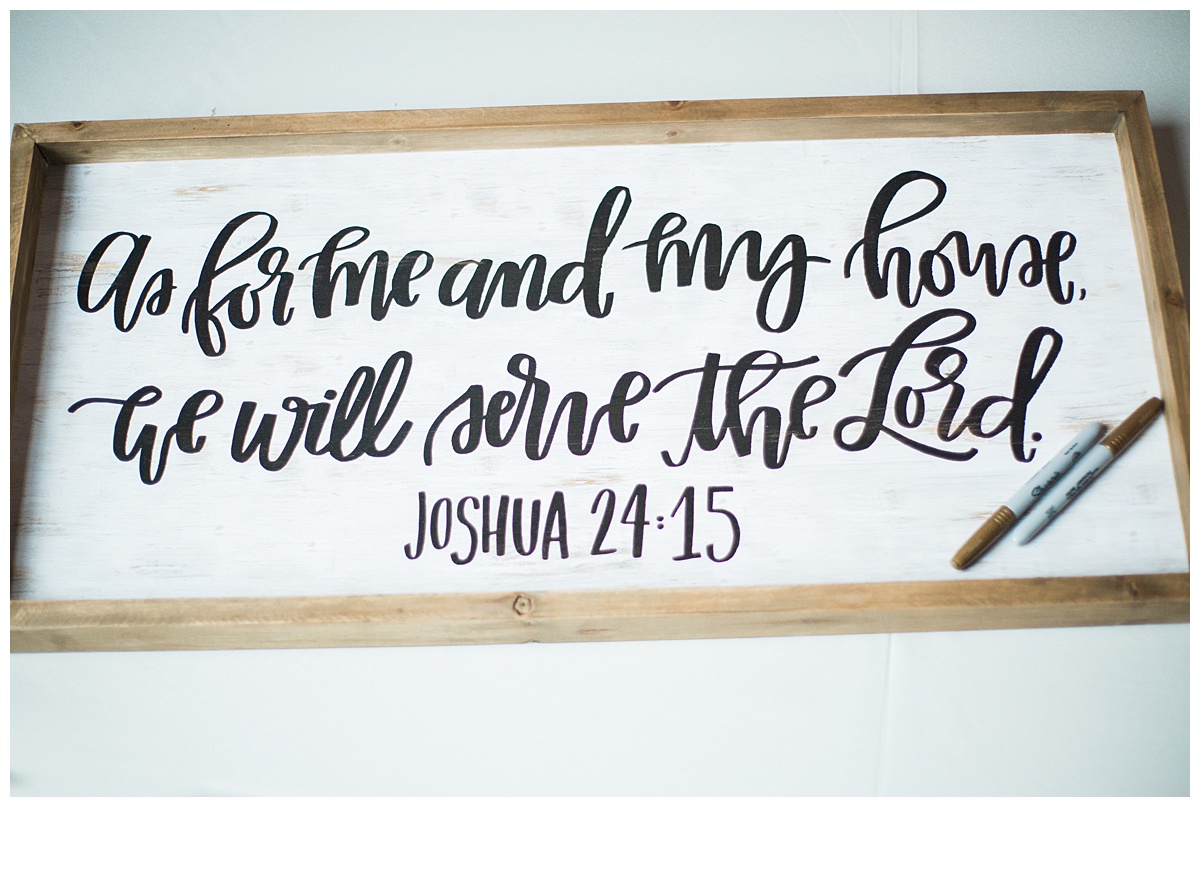 As for me and my house,
we will serve the Lord.
JOSHUA 24:15
Sharpie